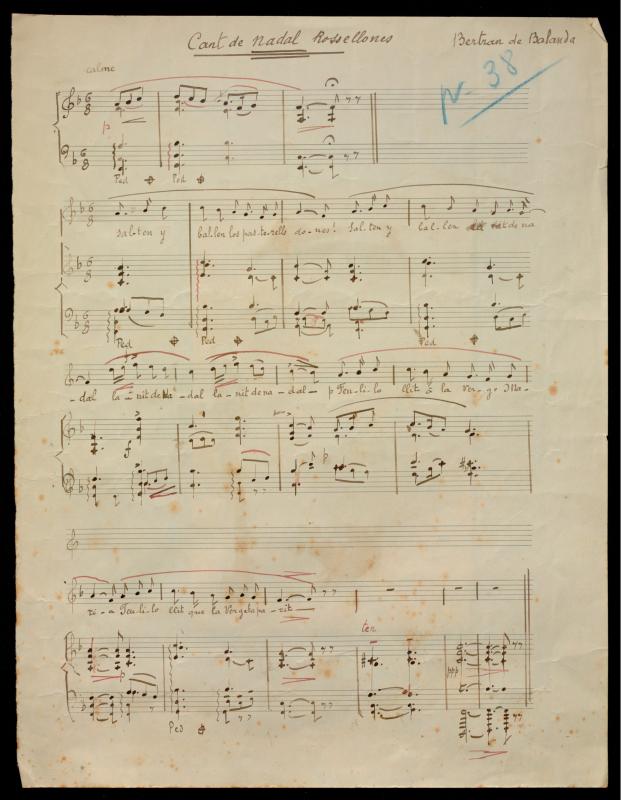 Cant de Nadal Rossellones Bertran de Balanda
N. 38
calme
p
Ped Ped
Sal-ten y bal-len los pas-to-rells do-nes! Sal-ten y bal-len nit de na
Ped Ped Ped
-dal la-nit de Na-dal la-nit de na-dal- p Feu-li-lo llit á la Ver-ge Ma-
f p
ri-a Feu-li-lo llit que la Verge ha pa-rit
ten
p ppp
Ped